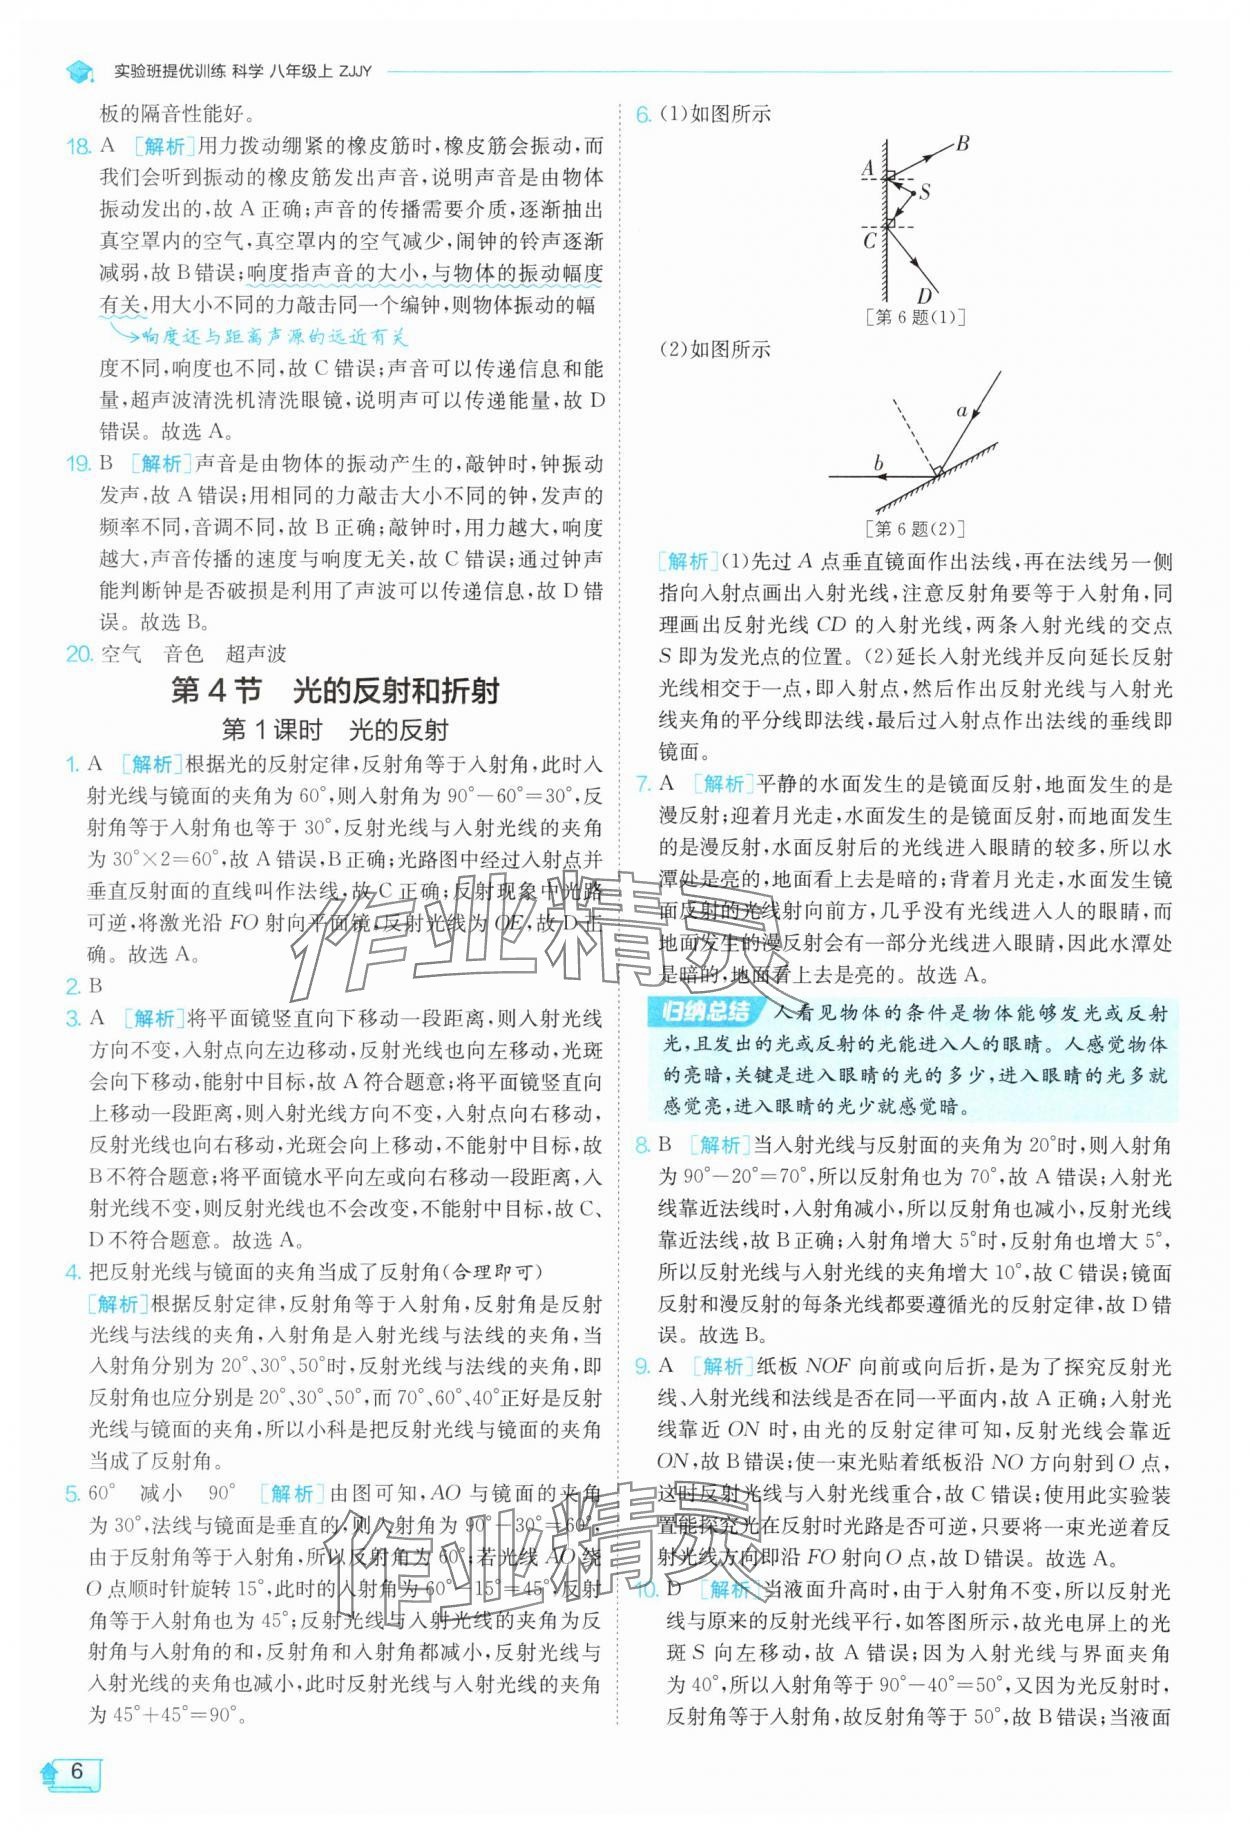 实验班提优训练 科学 八年级上 ZJJY
板的隔音性能好。
18. A [解析]用力拨动绷紧的橡皮筋时,橡皮筋会振动,而
我们会听到振动的橡皮筋发出声音,说明声音是由物体
振动发出的,故 A 正确;声音的传播需要介质,逐渐抽出
真空罩内的空气,真空罩内的空气减少,闹钟的铃声逐渐
减弱,故 B 错误;响度指声音的大小,与物体的振动幅度
有关,用大小不同的力敲击同一个编钟,则物体振动的幅
响度还与距离声源的远近有关
度不同,响度也不同,故 C 错误;声音可以传递信息和能
量,超声波清洗机清洗眼镜,说明声可以传递能量,故 D
错误。故选 A。
19. B [解析]声音是由物体的振动产生的,敲钟时,钟振动
发声,故 A 错误;用相同的力敲击大小不同的钟,发声的
频率不同,音调不同,故 B 正确;敲钟时,用力越大,响度
越大,声音传播的速度与响度无关,故 C 错误;通过钟声
能判断钟是否破损是利用了声波可以传递信息,故 D 错
误。故选 B。
20. 空气 音色 超声波
第 4 节 光的反射和折射
第 1 课时 光的反射
1. A [解析]根据光的反射定律,反射角等于入射角,此时入
射光线与镜面的夹角为 60°,则入射角为 90°－60°＝30°,反
射角等于入射角也等于 30°,反射光线与入射光线的夹角
为 30°×2＝60°,故 A 错误,B 正确;光路图中经过入射点并
垂直反射面的直线叫作法线,故 C 正确;反射现象中光路
可逆,将激光沿 FO 射向平面镜,反射光线为 OE,故 D 正
确。故选 A。
2. B
3. A [解析]将平面镜竖直向下移动一段距离,则入射光线
方向不变,入射点向左边移动,反射光线也向左移动,光斑
会向下移动,能射中目标,故 A 符合题意;将平面镜竖直向
上移动一段距离,则入射光线方向不变,入射点向右移动,
反射光线也向右移动,光斑会向上移动,不能射中目标,故
B 不符合题意;将平面镜水平向左或向右移动一段距离,入
射光线不变,则反射光线也不会改变,不能射中目标,故 C、
D 不符合题意。故选 A。
4. 把反射光线与镜面的夹角当成了反射角(合理即可)
[解析]根据反射定律,反射角等于入射角,反射角是反射
光线与法线的夹角,入射角是入射光线与法线的夹角,当
入射角分别为 20°、30°、50°时,反射光线与法线的夹角,即
反射角也应分别是 20°、30°、50°,而 70°、60°、40°正好是反射
光线与镜面的夹角,所以小科是把反射光线与镜面的夹角
当成了反射角。
5. 60° 减小 90° [解析]由图可知,AO 与镜面的夹角
为 30°,法线与镜面是垂直的,则入射角为 90°－30°＝60°,
由于反射角等于入射角,所以反射角为 60°;若光线 AO 绕
O 点顺时针旋转 15°,此时的入射角为 60°－15°＝45°,反
射角等于入射角也为 45°;反射光线与入射光线的夹角为反
射角与入射角的和,反射角和入射角都减小,反射光线与
入射光线的夹角会减小,此时反射光线与入射光线的夹角
为 45°＋45°＝90°。
6
6. (1)如图所示
A
B
S
C
D
[第 6 题(1)]
(2)如图所示
a
b
[第 6 题(2)]
[解析](1)先过 A 点垂直镜面作出法线,再在法线另一侧
指向入射点画出入射光线,注意反射角要等于入射角,同
理画出反射光线 CD 的入射光线,两条入射光线的交点
S 即为发光点的位置。(2)延长入射光线并反向延长反射
光线相交于一点,即入射点,然后作出反射光线与入射光
线夹角的平分线即法线,最后过入射点作出法线的垂线即
镜面。
7. A [解析]平静的水面发生的是镜面反射,地面发生的是
漫反射;迎着月光走,水面发生的是镜面反射,而地面发生
的是漫反射,水面反射后的光线进入眼睛的较多,所以水
潭处是亮的,地面看上去是暗的;背着月光走,水面发生镜
面反射的光线射向前方,几乎没有光线进入人的眼睛,而
地面发生的漫反射会有一部分光线进入眼睛,因此水潭处
是暗的,地面看上去是亮的。故选 A。
归纳总结 人看见物体的条件是物体能够发光或反射
光,且发出的光或反射的光能进入人的眼睛。人感觉物体
的亮暗,关键是进入眼睛的光的多少,进入眼睛的光多就
感觉亮,进入眼睛的光少就感觉暗。
8. B [解析]当入射光线与反射面的夹角为 20°时,则入射角
为 90°－20°＝70°,所以反射角也为 70°,故 A 错误;入射光
线靠近法线时,入射角减小,所以反射角也减小,反射光线
靠近法线,故 B 正确;入射角增大 5°时,反射角也增大 5°,
所以反射光线与入射光线的夹角增大 10°,故 C 错误;镜面
反射和漫反射的每条光线都要遵循光的反射定律,故 D 错
误。故选 B。
9. A [解析]纸板 NOF 向前或向后折,是为了探究反射光
线、入射光线和法线是否在同一平面内,故 A 正确;入射光
线靠近 ON 时,由光的反射定律可知,反射光线会靠近
ON,故 B 错误;使一束光贴着纸板沿 NO 方向射到 O 点,
这时反射光线与入射光线重合,故 C 错误;使用此实验装
置能探究光在反射时光路是否可逆,只要将一束光逆着反
射光线方向即沿 FO 射向 O 点,故 D 错误。故选 A。
10. D [解析]当液面升高时,由于入射角不变,所以反射光
线与原来的反射光线平行,如答图所示,故光电屏上的光
斑 S 向左移动,故 A 错误;因为入射光线与界面夹角
为 40°,所以入射角等于 90°－40°＝50°,又因为光反射时,
反射角等于入射角,故反射角等于 50°,故 B 错误;当液面
作业精灵
作业精灵